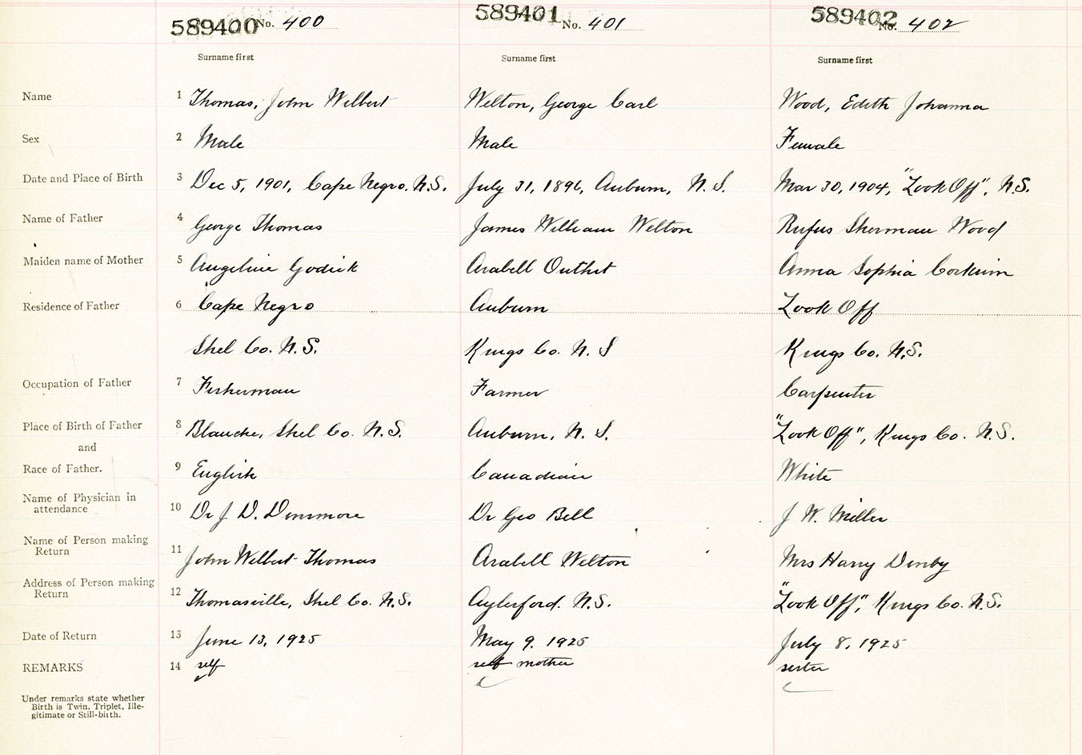 589400 No. 400 589401 No. 401 589402 No. 402
Surname first Surname first Surname first
Name 1 Thomas, John Wilbert Welton, George Carl Wood, Edith Johanna
Sex 2 Male Male Female
Date and Place of Birth 3 Dec 5, 1901, Cape Negro, N.S. July 31, 1896, Auburn, N.S. Mar 30, 1904, "Look Off", N.S.
Name of Father 4 George Thomas James William Welton Rufus Sherman Wood
Maiden name of Mother 5 Angeline Arabell Outhit Anna Sophia Corkum
Residence of Father 6 Cape Negro Auburn Look Off
Shel Co. N.S. Kings Co. N.S Kings Co. N.S.
Occupation of Father 7 Fisherman Farmer Carpenter
Place of Birth of Father 8 Blanche, Shel Co. N.S. Auburn, N.S. "Look Off", Kings Co. N.S.
and
Race of Father. 9 English Canadian White
Name of Physician in
attendance 10 Dr J. D. Densmore Dr Geo Bell J W. Miller
Name of Person making
Return 11 John Wilbert Thomas Arabell Welton Mrs Harry Denby
Address of Person making
Return 12 Thomasville, Shel Co. N.S. Aylesford. N.S. "Look Off", Kings Co. N.S.
Date of Return 13 June 13, 1925 May 9. 1925 July 8, 1925
REMARKS 14 self self mother sister
Under remarks state whether
Birth is Twin, Triplet, Ille-
gitimate or Still-birth.